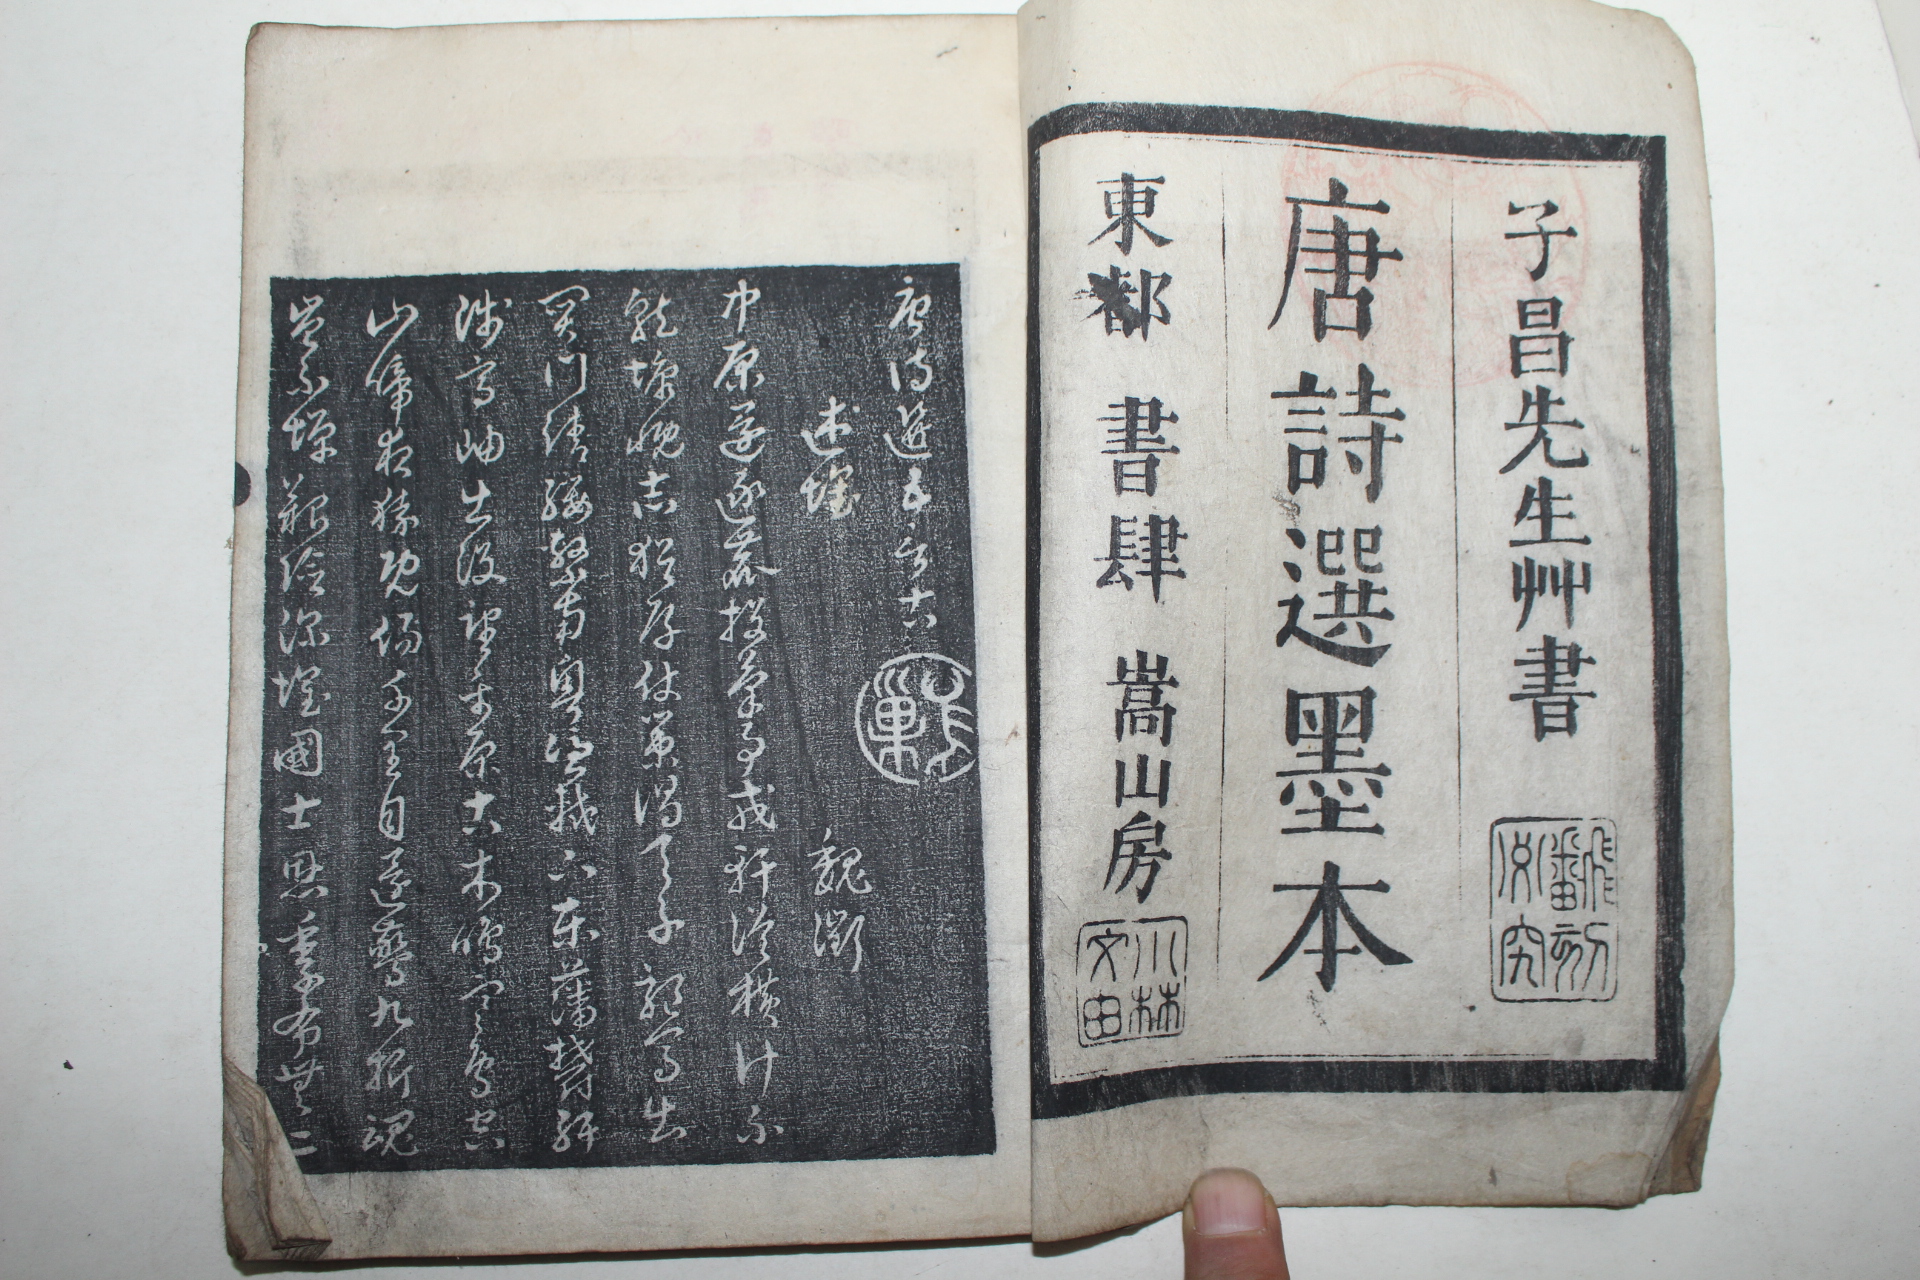 子昌先生艸書
唐詩選墨本
東都 書肆 嵩山房
飜刻必究
小林文由
唐詩選五言古
述懷 魏徵
中原還逐鹿投筆事戎軒縱橫計不
就慷慨志猶存仗策謁天子驅馬出
關門請纓繫南粵憑軾下東藩鬱紆
陟高岫出沒望平原古木鳴寒鳥空
山啼夜猿既傷千里目還驚九折魂
豈不憚艱險深懷國士恩季布無二